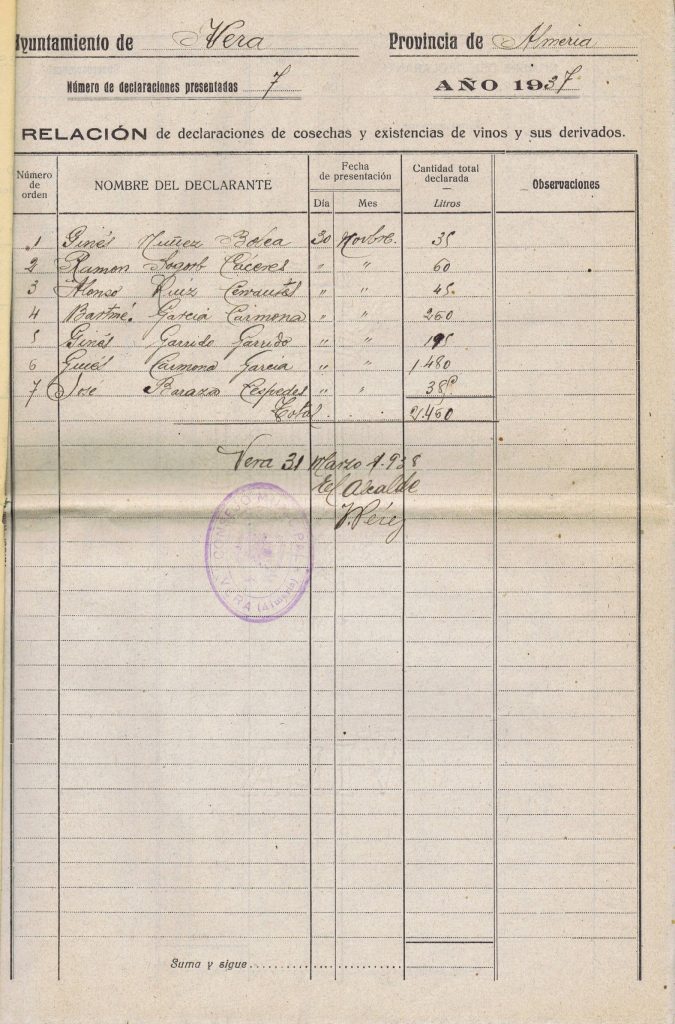 Ayuntamiento de Vera Provincia de Almeria
Número de declaraciones presentadas 7 AÑO 1937
RELACIÓN de declaraciones de cosechas y existencias de vinos y sus derivados.
Número de orden NOMBRE DEL DECLARANTE Fecha de presentación Día Mes Cantidad total declarada — Litros Observaciones
1 Ginés Nuñez 30 Novbre. 35
2 Ramon Sogorb Cáceres " " 60
3 Alonso Ruiz Cervantes " " 45
4 Bartmé. Garcia Carmona " " 260
5 Ginés Garrido Garrido " " 195
6 Ginés Carmona Garcia " " 1480
7 José Cespedes " "
Total . . . 2.460
Vera 31 Marzo 1.938
El Alcalde
Pérez
CONSEJO MUNICIPAL
VERA (Almería)
Suma y sigue